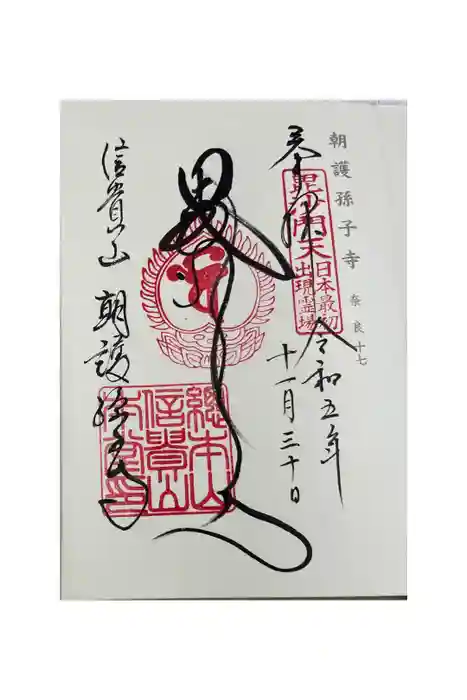 朝護孫子寺 奈良十七
奉拝
毘沙門天
日本最初
出現霊場
令和五年
十一月三十日
信貴山 朝護孫子寺
總本山
信貴山